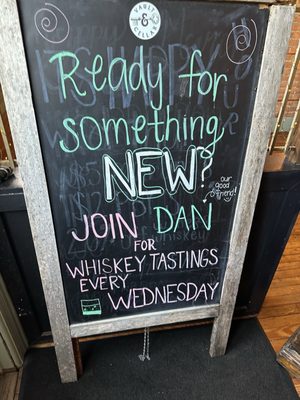 VAULT
&
CELLAR
Ready for
something
NEW?
our
good
friend!
JOIN DAN
FOR
WHISKEY TASTINGS
EVERY
WEDNESDAY